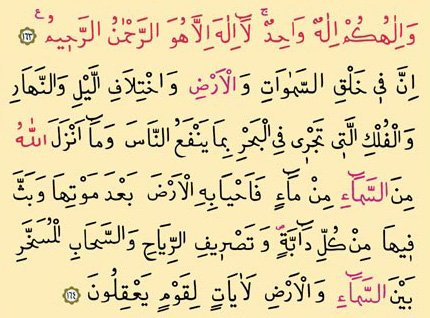 وَاِلٰهُكُمْ اِلٰهٌ وَاحِدٌۚ لَٓا اِلٰهَ اِلَّا هُوَ الرَّحْمٰنُ الرَّح۪يمُ۟ ﴿١٦٣﴾
اِنَّ ف۪ي خَلْقِ السَّمٰوَاتِ وَالْاَرْضِ وَاخْتِلَافِ الَّيْلِ وَالنَّهَارِ
وَالْفُلْكِ الَّت۪ي تَجْر۪ي فِي الْبَحْرِ بِمَا يَنْفَعُ النَّاسَ وَمَٓا اَنْزَلَ اللّٰهُ
مِنَ السَّمَٓاءِ مِنْ مَٓاءٍ فَاَحْيَا بِهِ الْاَرْضَ بَعْدَ مَوْتِهَا وَبَثَّ
ف۪يهَا مِنْ كُلِّ دَٓابَّةٍ وَتَصْر۪يفِ الرِّيَاحِ وَالسَّحَابِ الْمُسَخَّرِ
بَيْنَ السَّمَٓاءِ وَالْاَرْضِ لَاٰيَاتٍ لِقَوْمٍ يَعْقِلُونَ ﴿١٦٤﴾